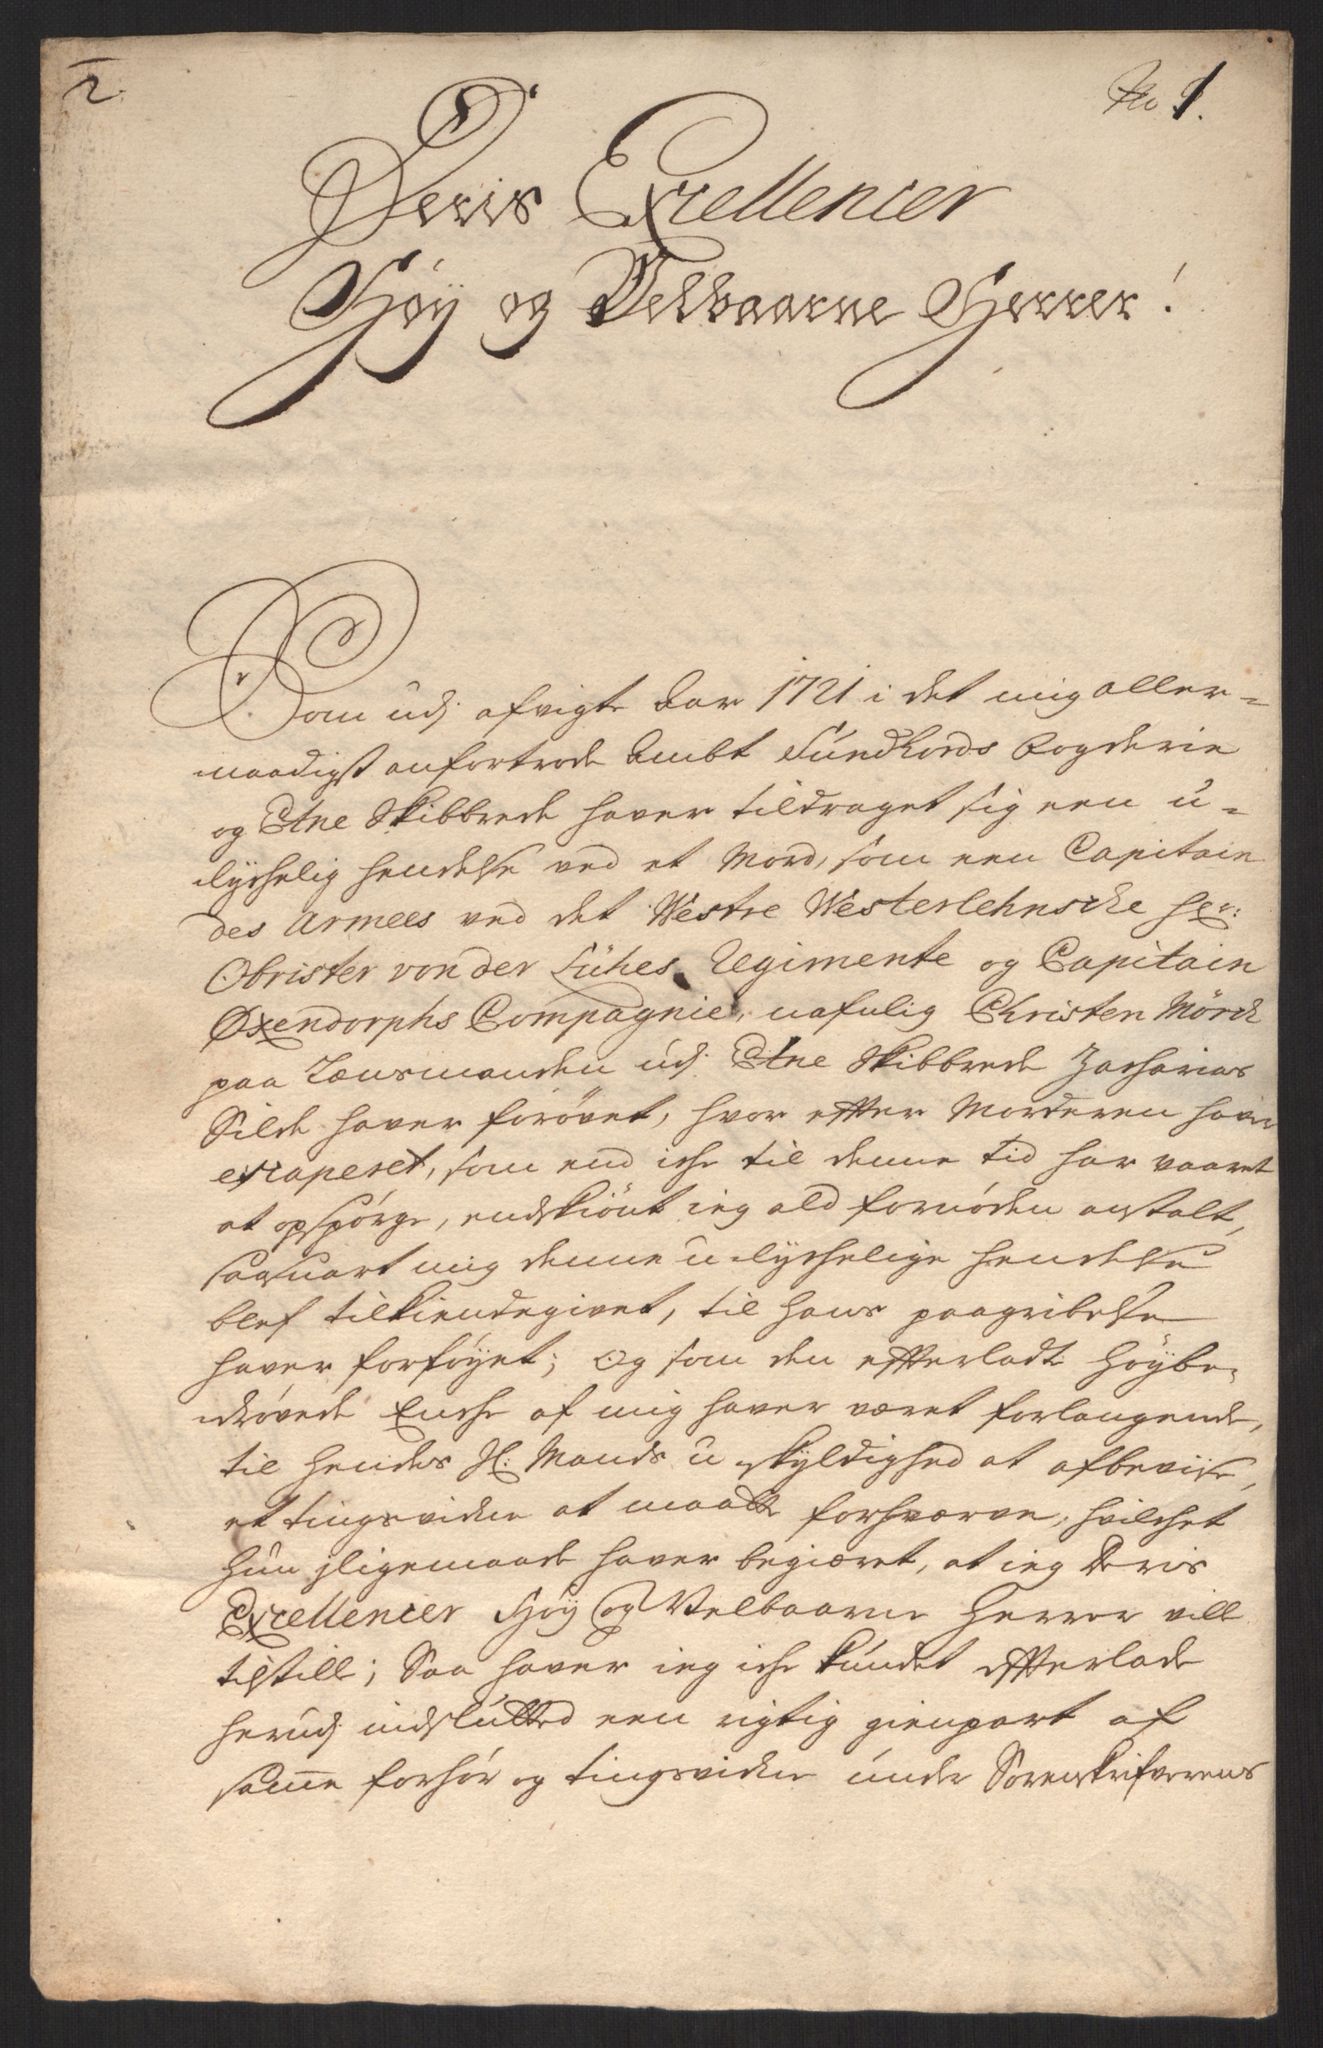 2.
No 1.
Deris Excellencier
Høy og Velbaarne Herrer!
Som udj afvigte Aar 1721 i det mig aller-
naadigst anfortrode Ambt Sundhords Fogderie
og Etne Skibbrede haver tildraget sig een u-
lychelig hendelse ved et Mord, som een Capitain
des Armees ved det Westre Westerlehnsche Hr:
Obrister von der Lühes Regimente og Capitain
Oxendorphs Compagnie, nafnlig Christen Mörck
paa Lænsmanden udj Etne Skibbrede Zacharias
Silde haver forøvet, hvor effter Morderen haver
escaperet, som end iche til denne tid har vaaret
at opspørge, endskiønt ieg ald fornøden anstalt,
saasnart mig denne ulychelige hendelse
blef tilkiendegivet, til hans paagribelse
haver forføyet; Og som den effterladte Høybe-
drøvede Enche af mig haver været forlangende,
til hendes Sl: Mands uskyldighed at afbevise,
et tingsvidne at maatte forhværve, hvilchet
hun jligemaade haver begiæret, at ieg Deris
Excellencier Høy og Velbaarne Herrer vill
tilstill; Saa haver ieg iche kundet effterlade
herudj indslutted een rigtig gienpart af
samme forhør og tingsvidne under Sorenskrifverens